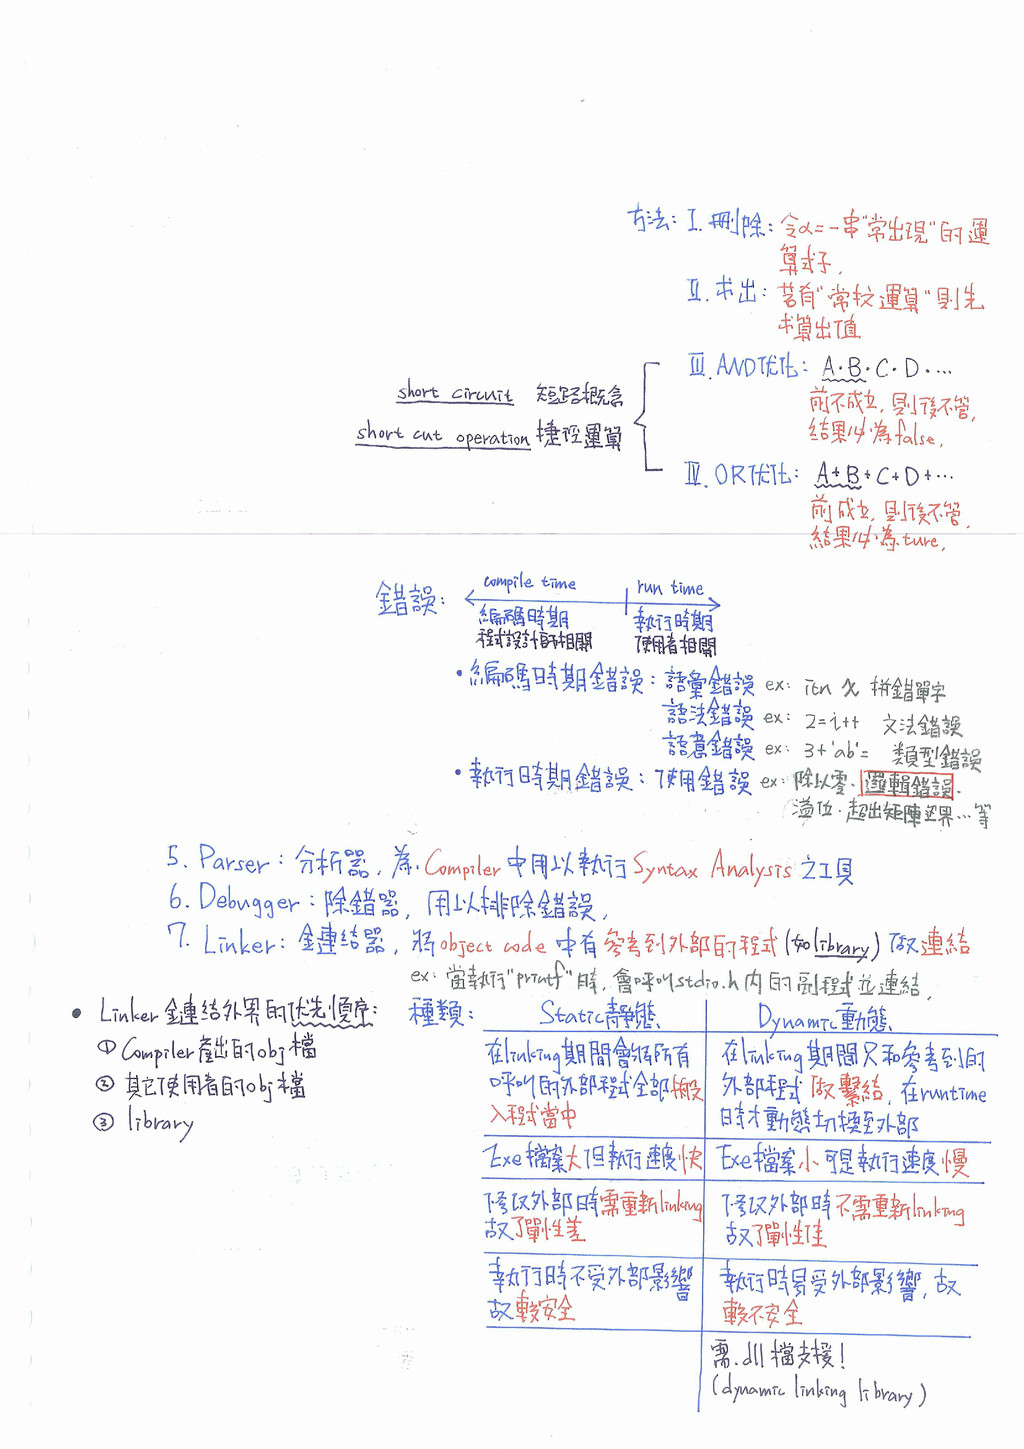 方法: I. 刪除: 令α=一串"常出現"的運
算式子.
II. 求出: 若有"常校運算"則先
求算出值
III. AND优化: A·B·C·D·...
前不成立, 則後不管,
結果必為false.
short circuit 短路概念
short cut operation 捷徑運算
IV. OR优化: A+B+C+D+...
前成立, 則後不管,
結果必為ture.
錯誤: compile time run time
編碼時期 執行時期
程式設計師相關 使用者相關
•編碼時期錯誤: 語彙錯誤 ex: itn x 拼錯單字
語法錯誤 ex: 2=i++ 文法錯誤
語意錯誤 ex: 3+'ab'= 類型錯誤
•執行時期錯誤: 使用錯誤 ex: 除以零. 邏輯錯誤.
溢位. 超出矩陣邊界...等
5. Parser: 分析器, 為 Compiler 中用以執行 Syntax Analysis 之工具
6. Debugger: 除錯器, 用以排除錯誤.
7. Linker: 鏈結器, 將 object code 中有參考到外部的程式(如library) 做連結
ex: 當執行"printf"時, 會呼叫stdio.h內的副程式並連結.
• Linker 鏈結外界的优先順序:
① Compiler產出的obj檔
② 其它使用者的obj檔
③ library
種類: Static靜態 Dynamic動態
在linking期間會將所有 在linking期間只和參考到的
呼叫的外部程式全部搬 外部程式 做繫結, 在runtime
入程式當中 時才動態切換至外部
Exe檔案大但執行速度快 Exe檔案小可是執行速度慢
修改外部時需重新linking 修改外部時不需重新linking
故彈性差 故彈性佳
執行時不受外部影響 執行時易受外部影響, 故
故較安全 較不安全
需.dll檔支援!
(dynamic linking library)